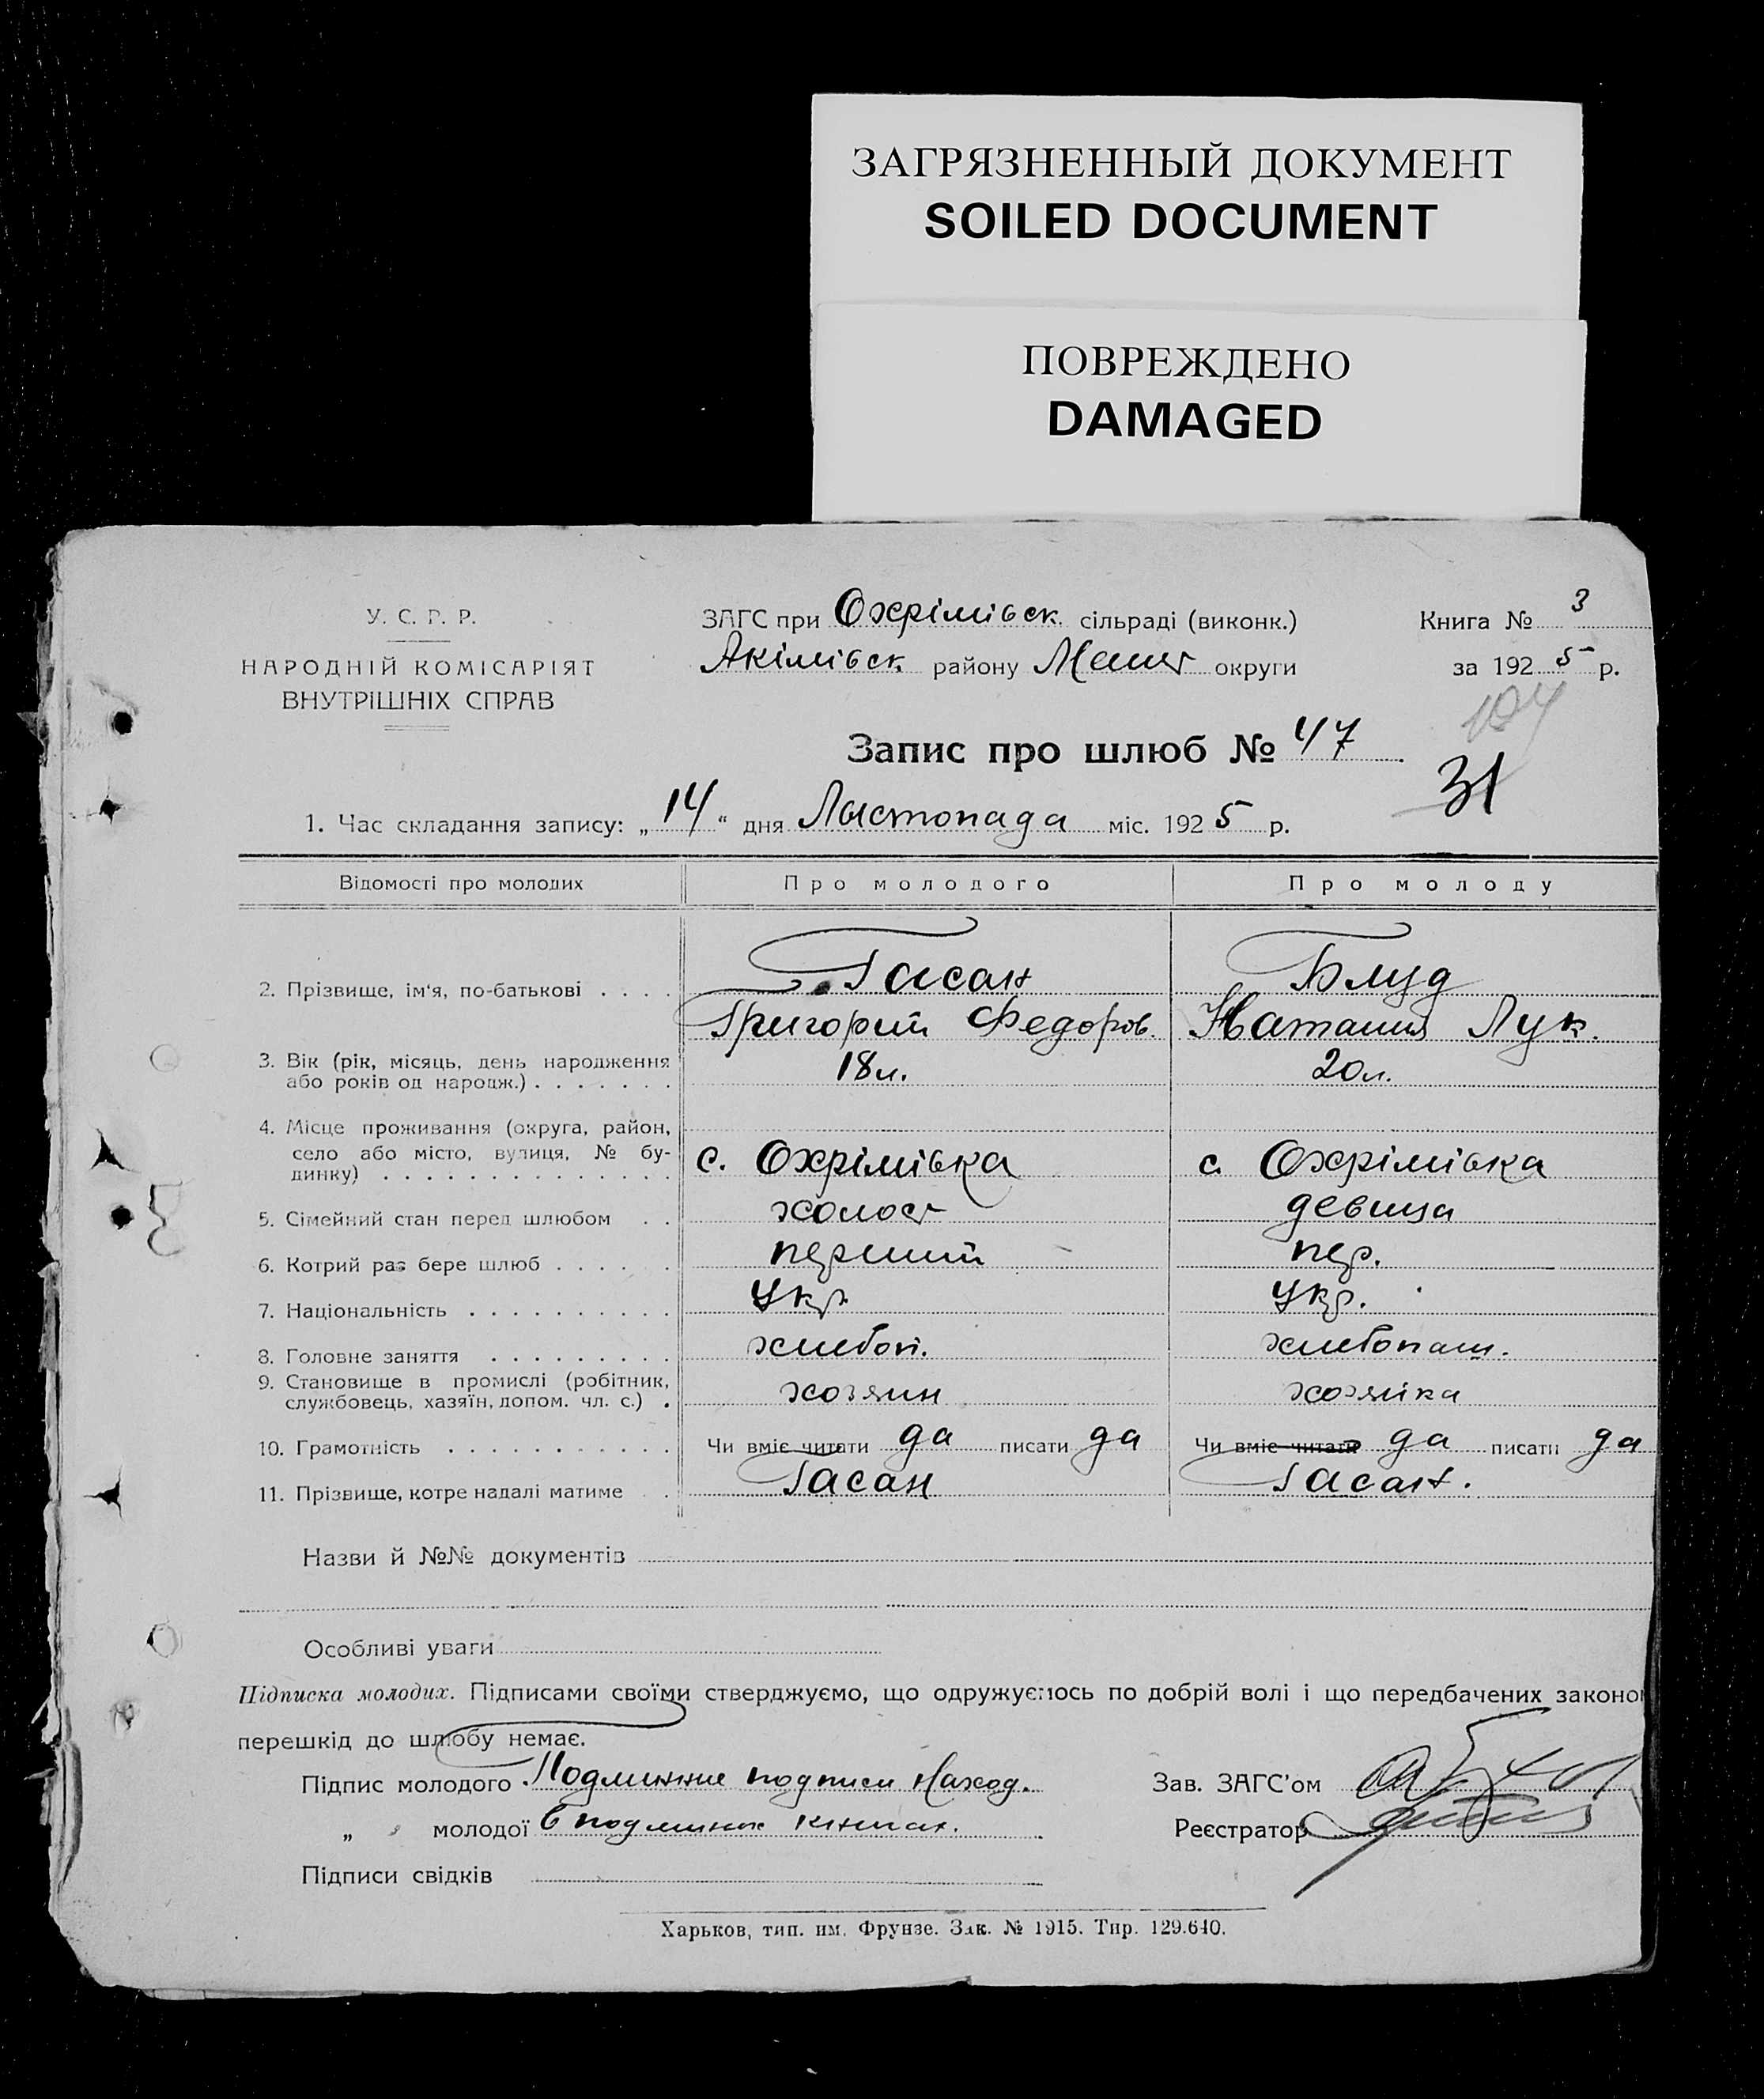 ЗАГРЯЗНЕННЫЙ ДОКУМЕНТ
SOILED DOCUMENT
ПОВРЕЖДЕНО
DAMAGED
У. С. Р. Р.
НАРОДНІЙ КОМІСАРІЯТ
ВНУТРІШНІХ СПРАВ
ЗАГС при Охрімівск. сільраді (виконк.)
Акімівск. району Меліт округи
Книга № 3
за 1925 р.
Запис про шлюб № 47
194
31
1. Час складання запису: „14“ дня Листопада міс. 1925 р.
Відомості про молодих Про молодого Про молоду
2. Прізвище, ім‘я, по-батькові . . . . Гасан Блуд
Григорий Федоров. Наташия Лук.
3. Вік (рік, місяць, день народження
або років од народж.) . . . . . . . 18 л. 20 л.
4. Місце проживання (округа, район,
село або місто, вулиця, № бу-
динку) . . . . . . . . . . . . . . с. Охрімівка с. Охрімівка
5. Сімейний стан перед шлюбом . . холост девица
6. Котрий раз бере шлюб . . . . . перший пер.
7. Національність . . . . . . . . . . Укр. Укр.
8. Головне заняття . . . . . . . . . хлибоп. хлибопаш.
9. Становище в промислі (робітник,
службовець, хазяїн, допом. чл. с.) . хозяин хозяйка
10. Грамотність . . . . . . . . . . . Чи вміє читати да писати да Чи вміє читати да писати да
11. Прізвище, котре надалі матиме . Гасан Гасан.
Назви й №№ документів
Особливі уваги
Підписка молодих. Підписами своїми стверджуємо, що одружуємось по добрій волі і що передбачених законо
перешкід до шлюбу немає.
Підпис молодого Подлинние подписи наход.
„ молодої в подлиних книгах.
Зав. ЗАГС’ом
Реєстратор
Підписи свідків
Харьков, тип. им. Фрунзе. Зак. № 1915. Тир. 129.640.